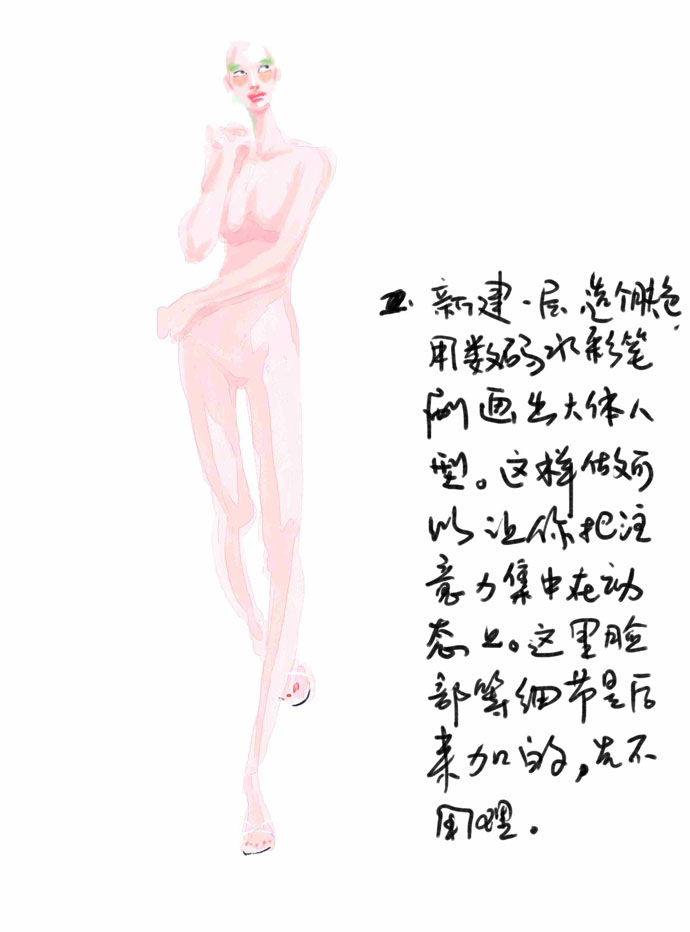 II. 新建一层 选个肤色
用数码水彩笔
刷画出大体人
型。这样做可
以让你把注
意力集中在动
态上。这里脸
部等细节是后
来加的，先不
用理。